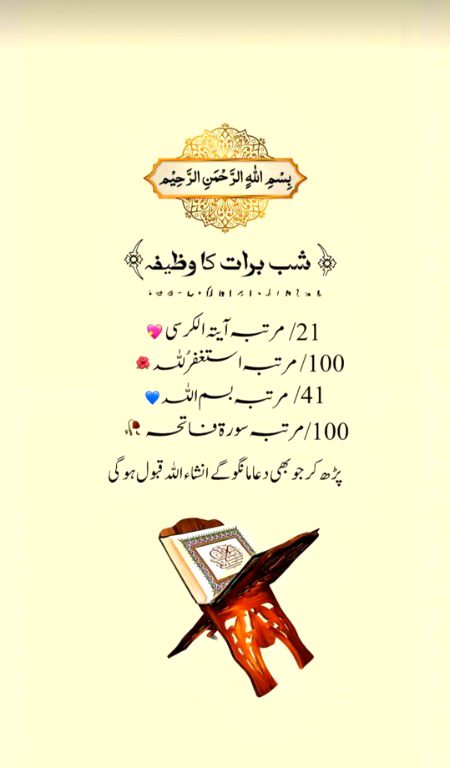 بِسْمِ اللهِ الرَّحْمٰنِ الرَّحِيْمِ
شب برات کا وظیفہ
21/ مرتبہ آیتہ الکرسی 💖
100/ مرتبہ استغفرُللہ 🌺
41/ مرتبہ بسم اللہ 💙
100/مرتبہ سورۃ فاتحہ 🥀
پڑھ کر جو بھی دعا مانگو گے انشاءاللہ قبول ہوگی